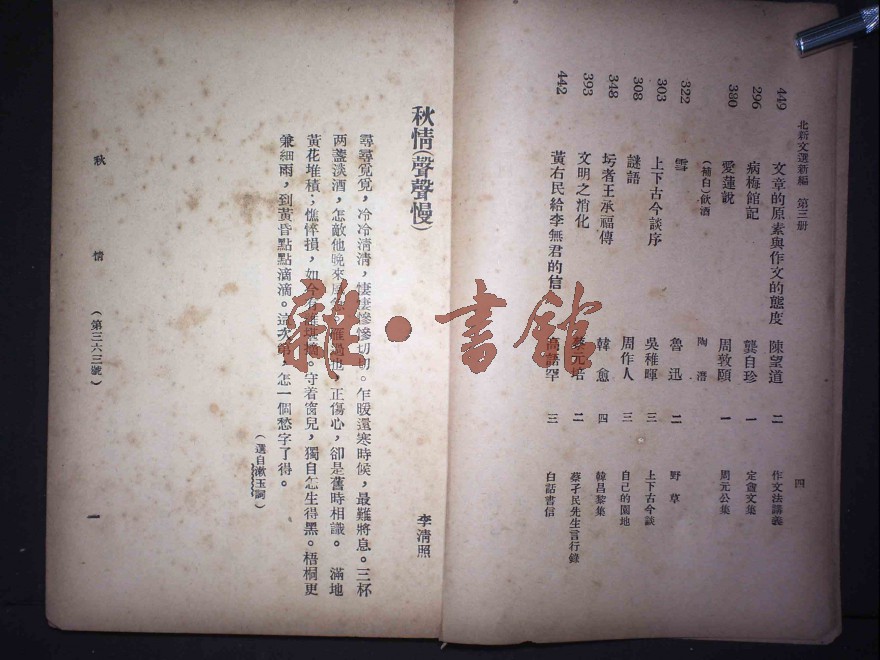 北新文選新編 第三册 四
449 文章的原素與作文的態度 陳望道 二 作文法講義
296 病梅館記 龔自珍 一 定盦文集
380 愛蓮說 周敦頤 一 周元公集
(補白)飲酒 陶潛
322 雪 魯迅 二 野草
303 上下古今談序 吳稚暉 三 上下古今談
308 謎語 周作人 三 自己的園地
348 圬者王承福傳 韓愈 四 韓昌黎集
393 文明之消化 蔡元培 二 蔡孑民先生言行錄
442 黃右民給李無君的信 高語罕 三 白話書信
秋情(聲聲慢) 李清照
尋尋覓覓，冷冷清清，悽悽慘慘切切。乍暖還寒時候，最難將息。三杯
两盞淡酒，怎敵他晚來風急？雁過也，正傷心，卻是舊時相識。 滿地
黃花堆積；憔悴損，如今有誰堪摘。守着窗兒，獨自怎生得黑。梧桐更
兼細雨，到黃昏點點滴滴。這次第，怎一個愁字了得。
(選自漱玉詞)
秋情 (第三六三號) 一
雜·書館